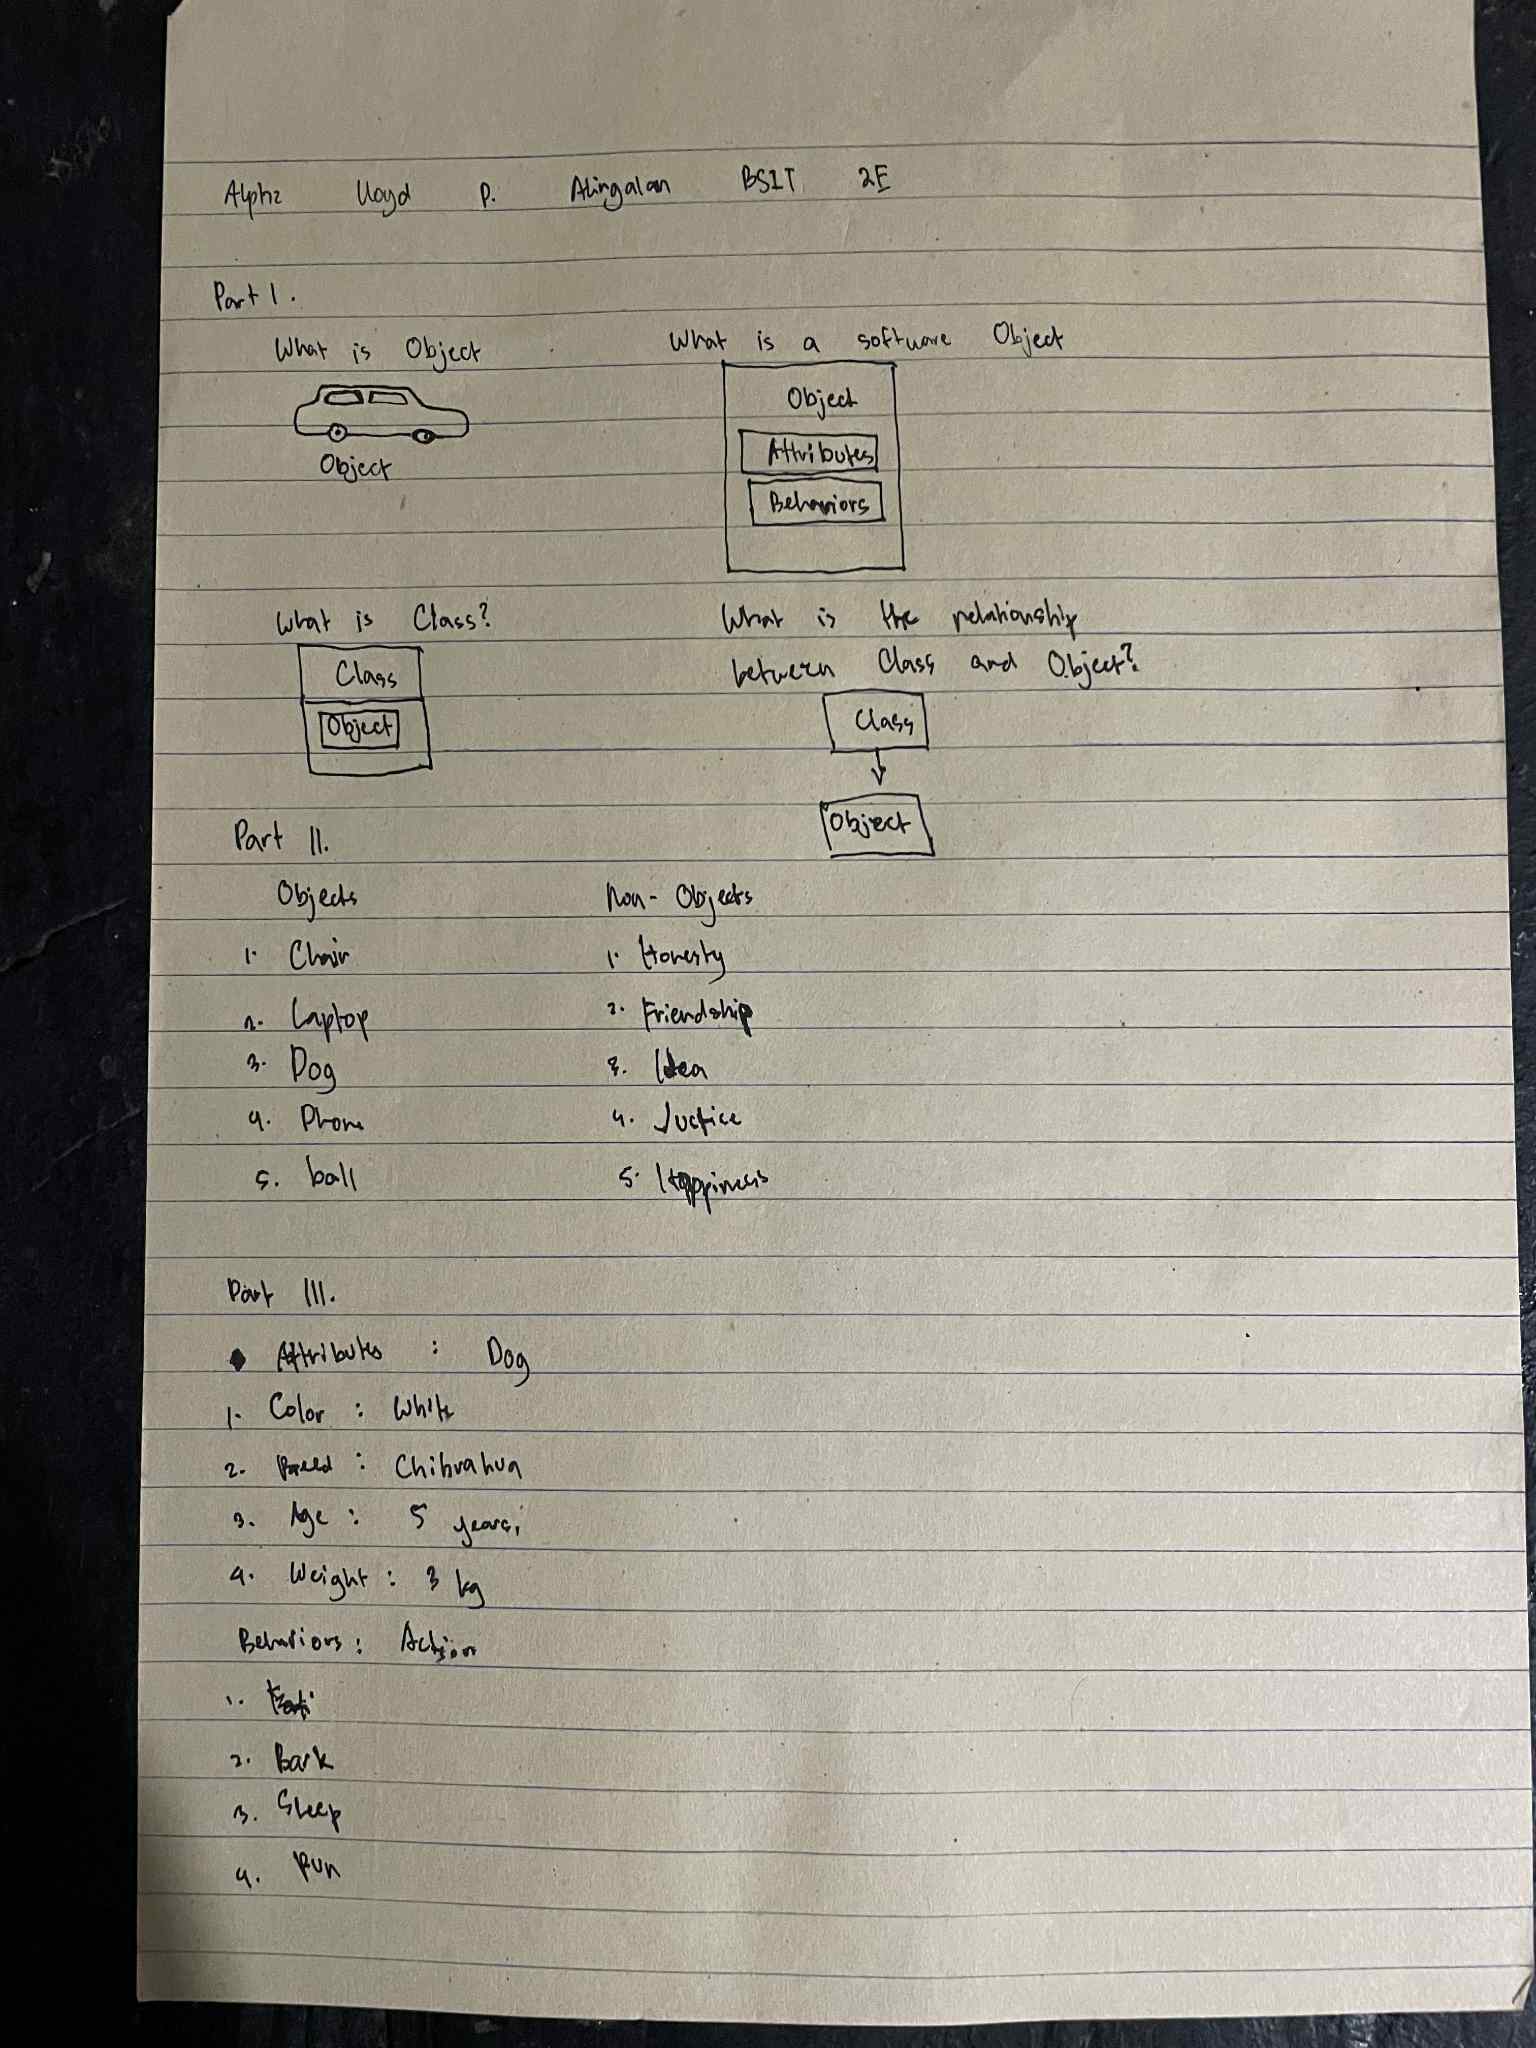 Alpha Lloyd P. Alingalan BSIT 2E
Part I.
What is Object
Object
What is a software Object
Object
Attributes
Behaviors
What is Class?
Class
Object
What is the relationship
between Class and Object?
Class
Object
Part II.
Objects
1. Chair
2. Laptop
3. Dog
4. Phone
5. ball
Non-Objects
1. Honesty
2. Friendship
3. Idea
4. Justice
5. Happiness
Part III.
Attributes : Dog
1. Color : White
2. Breed : Chihuahua
3. Age : 5 years
4. Weight : 3 kg
Behaviors : Action
1.
2. Bark
3. Sleep
4. Run